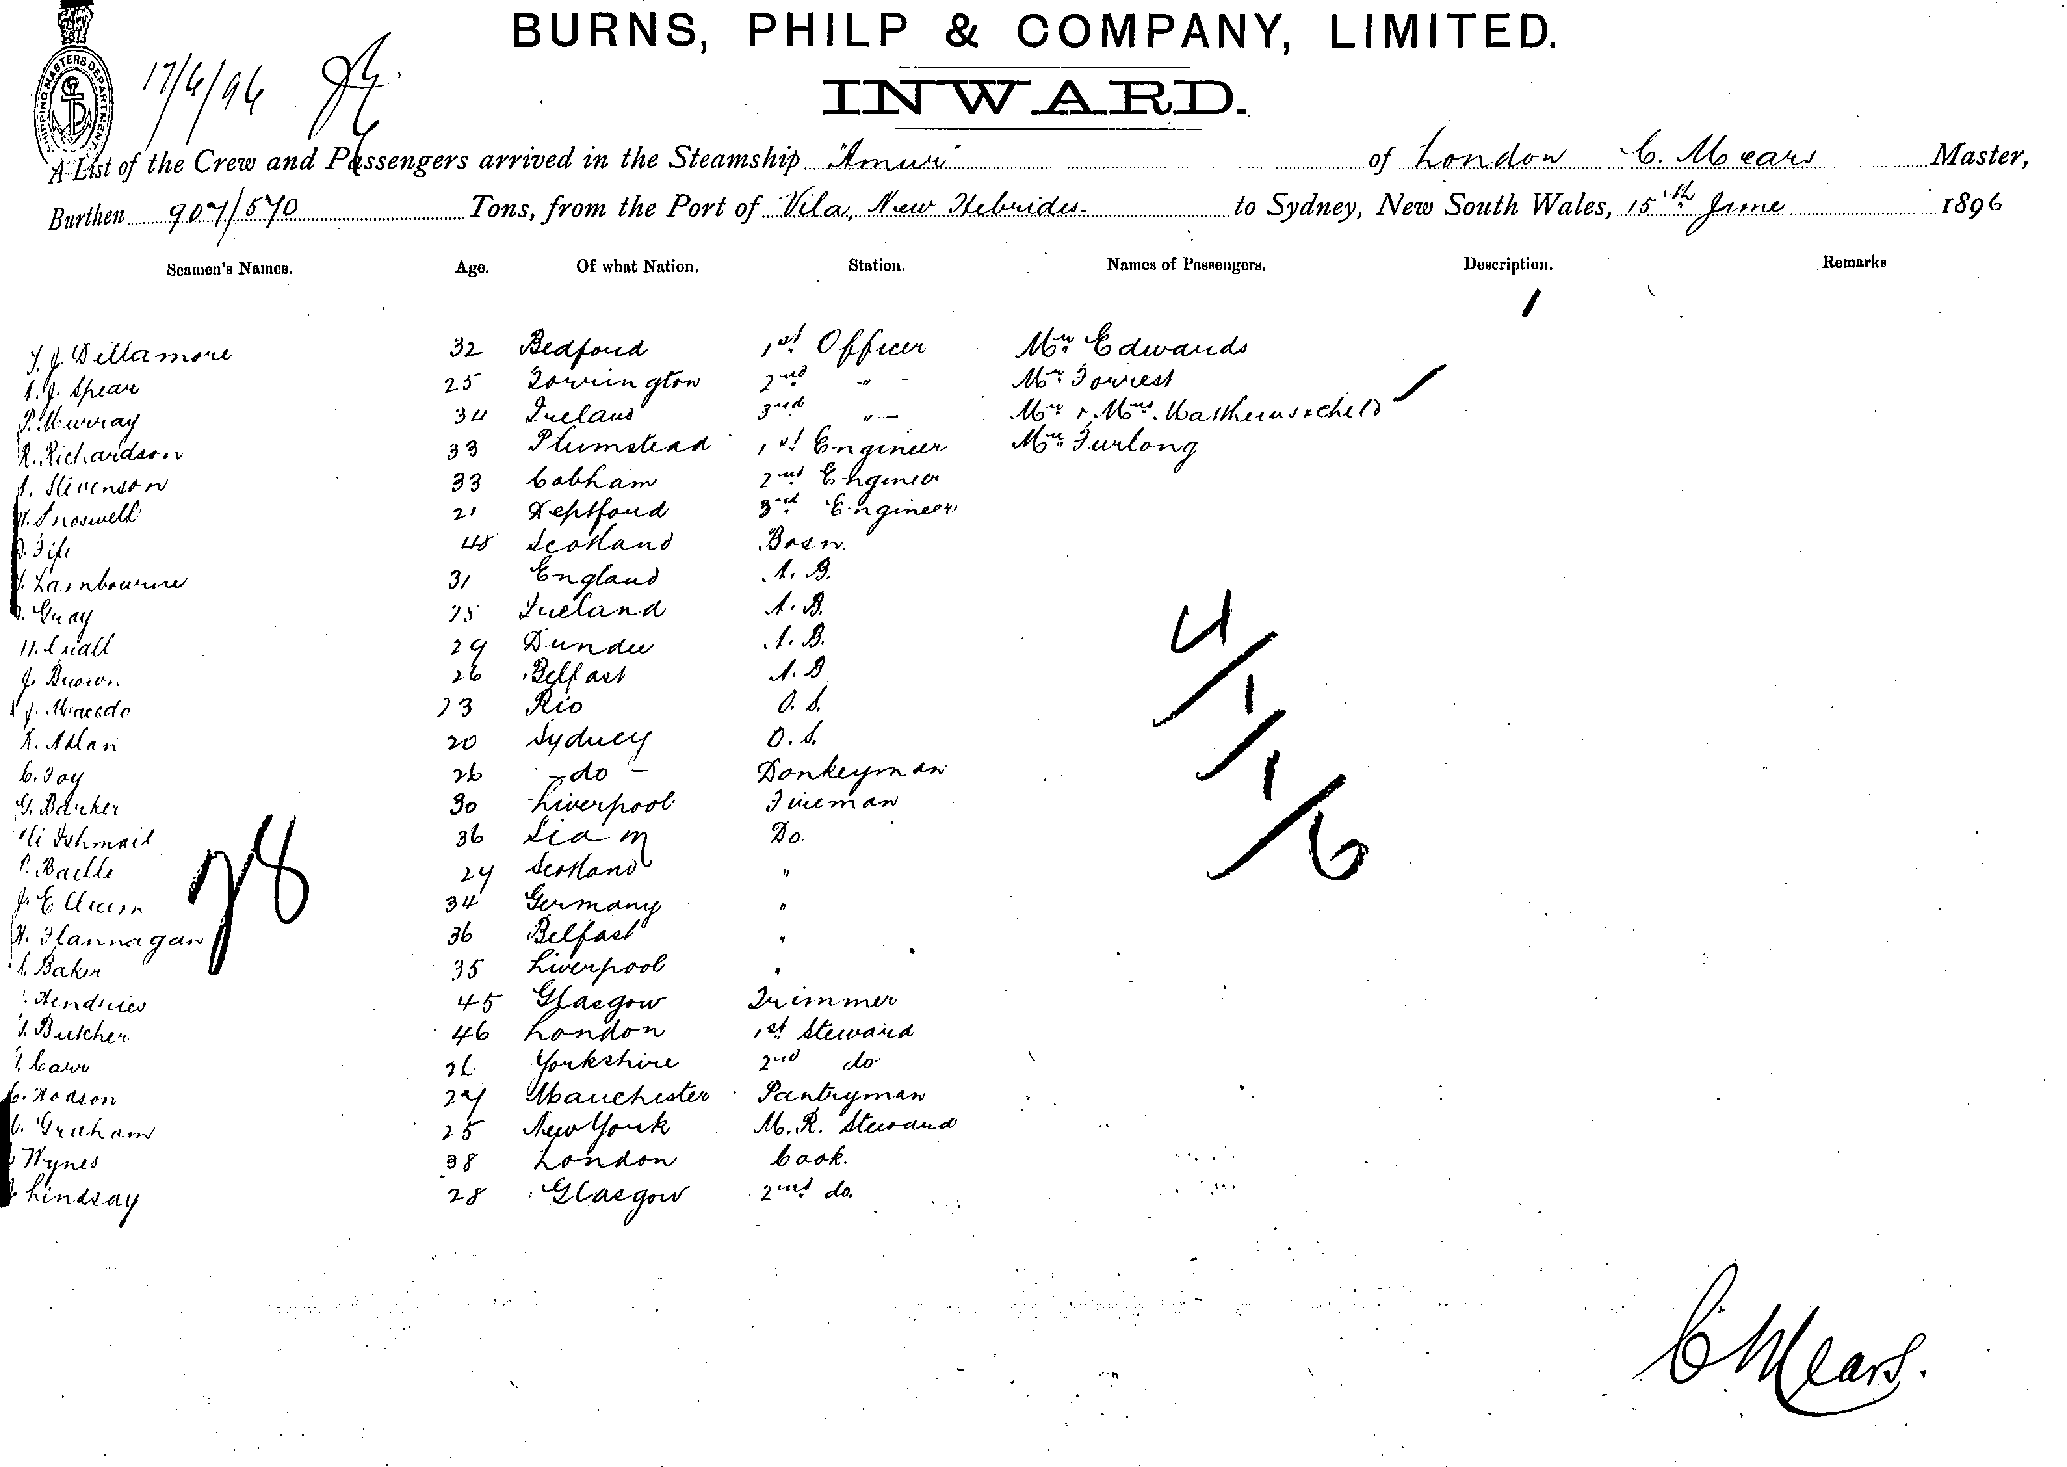 BURNS, PHILP & COMPANY, LIMITED.
INWARD.
SHIPPING MASTERS DEPARTMENT
17/6/96
A List of the Crew and Passengers arrived in the Steamship "Amuri" of London C. Mears Master,
Burthen 907/570 Tons, from the Port of Vila, New Hebrides. to Sydney, New South Wales, 15th June 1896
Seamen's Names. Age. Of what Nation. Station. Names of Passengers. Description. Remarks
Dellamore 32 Bedford 1st Officer Mr Edwards
J. Spear 25 Torrington 2nd " - Mr Forrest
P. Murray 34 Ireland 3rd " - Mr & Mrs
R. Richardson 33 Plumstead 1st Engineer Mr Furlong
Stevenson 33 Cobham 2nd Engineer
Snoswell 21 Deptford 3rd Engineer
Fife 48 Scotland Bosn.
Lambourne 31 England A. B.
Gray 25 Ireland A. B.
29 Dundee A. B.
J. Brown 26 Belfast A. B
J. Macedo 23 Rio O. S.
20 Sydney O. S.
C. Foy 26 - do - Donkeyman
G. Barker 30 Liverpool Fireman
Ishmail 36 Siam Do.
24 Scotland "
J. 34 Germany "
H. Flannagan 36 Belfast "
Baker 35 Liverpool "
Hendries 45 Glasgow Trimmer
Butcher 46 London 1st Steward
Carr 26 Yorkshire 2nd do
C. Hodson 27 Manchester Pantryman
Graham 25 New York M. R. Steward
Wynes 38 London Cook.
Lindsay 28 Glasgow 2nd do.
28
4/1/1/6
C Mears.